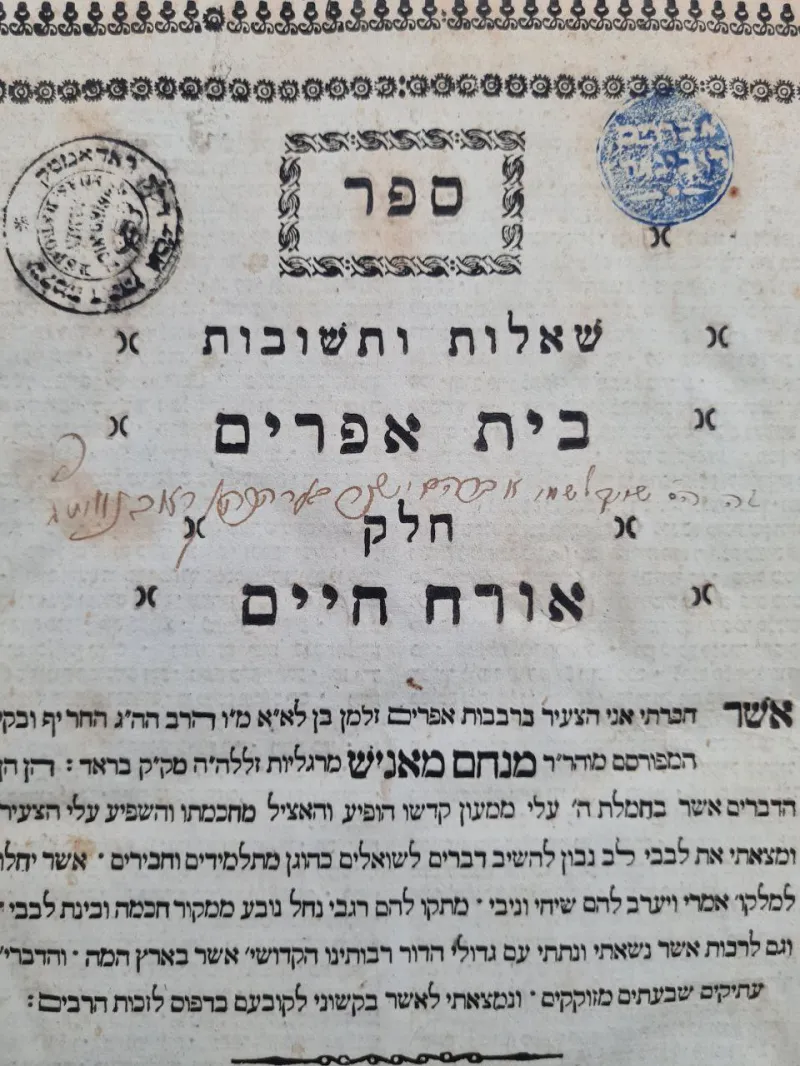 ספר
שאלות ותשובות
בית אפרים
חלק
אורח חיים
אשר חברתי אני הצעיר ברבבות אפרים זלמן בן לא״א מ״ו הרב הה״ג החריף ובקי
המפורסם מוהר״ר מנחם מאניש מרגליות זללה״ה מק״ק בראד : הן הן
הדברים אשר בחמלת ה׳ עלי ממעון קדשו הופיע והאציל מחכמתו והשפיע עלי הצעיר
ומצאתי את לבבי לב נבון להשיב דברים לשואלים כהוגן מתלמידים וחבירים · אשר יחלו
למלקו׳ אמרי ויערב להם שיחי וניבי · מתקו להם רגבי נחל נובע ממקור חכמה ובינת לבבי ·
וגם לרבות אשר נשאתי ונתתי עם גדולי הדור רבותינו הקדושי׳ אשר בארץ המה · והדברי׳
עתיקים שבעתים מזוקקים · ונמצאתי לאשר בקשוני לקובעם בדפוס לזכות הרבים :